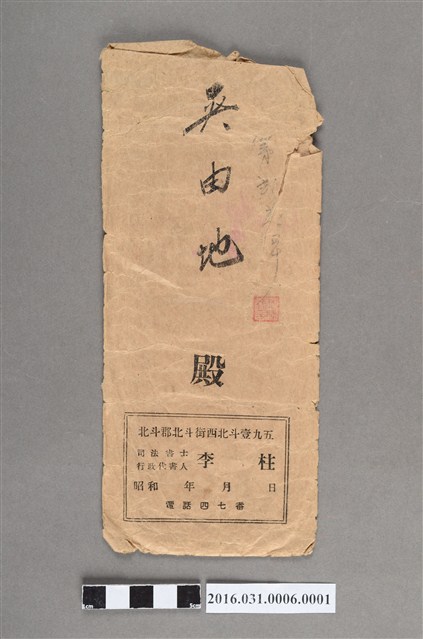 吳由地 殿
北斗郡北斗街西北斗壹九五
司法書士
行政代書人 李柱
昭和 年 月 日
電話四七番
5cm
5cm
2016.031.0006.0001